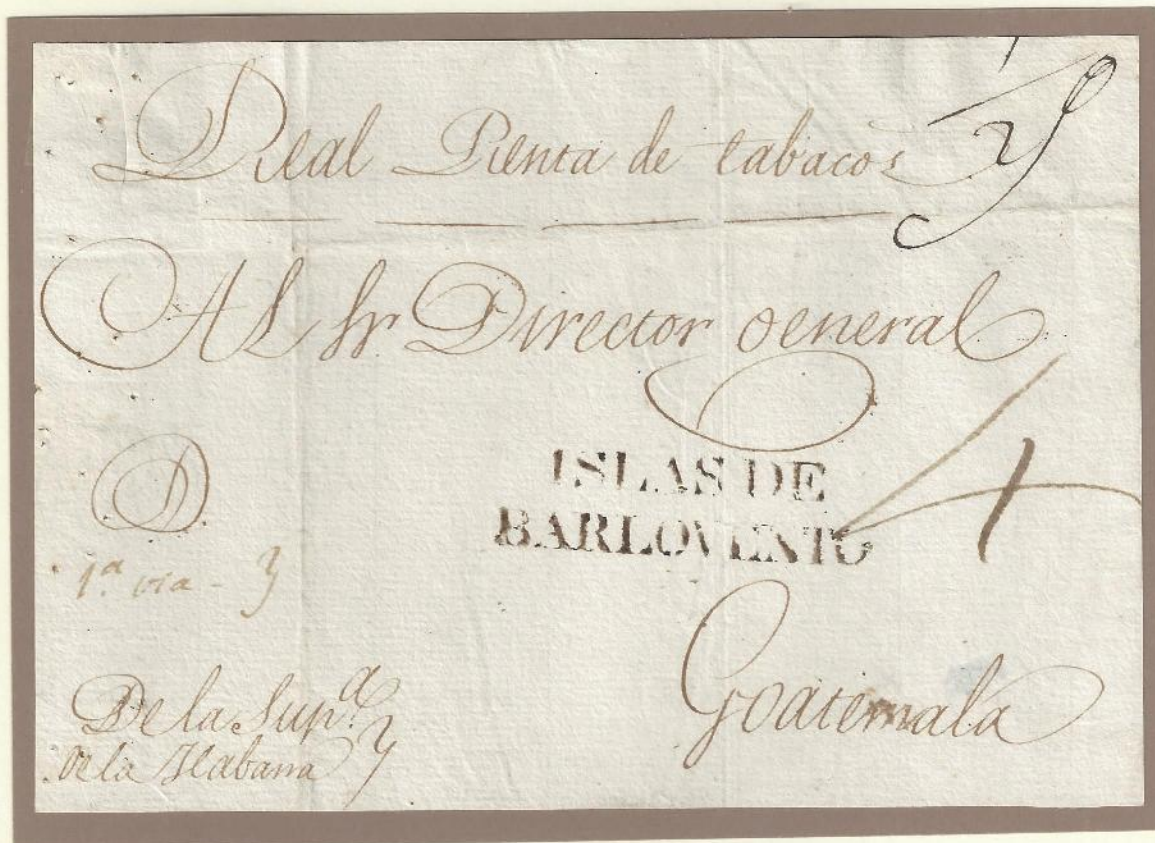 Real Renta de tabacos
Al Sr Director General
D
ISLAS DE
BARLOVENTO
4
1.ª via
Goatemala
De la Sup.ª
de la Habana